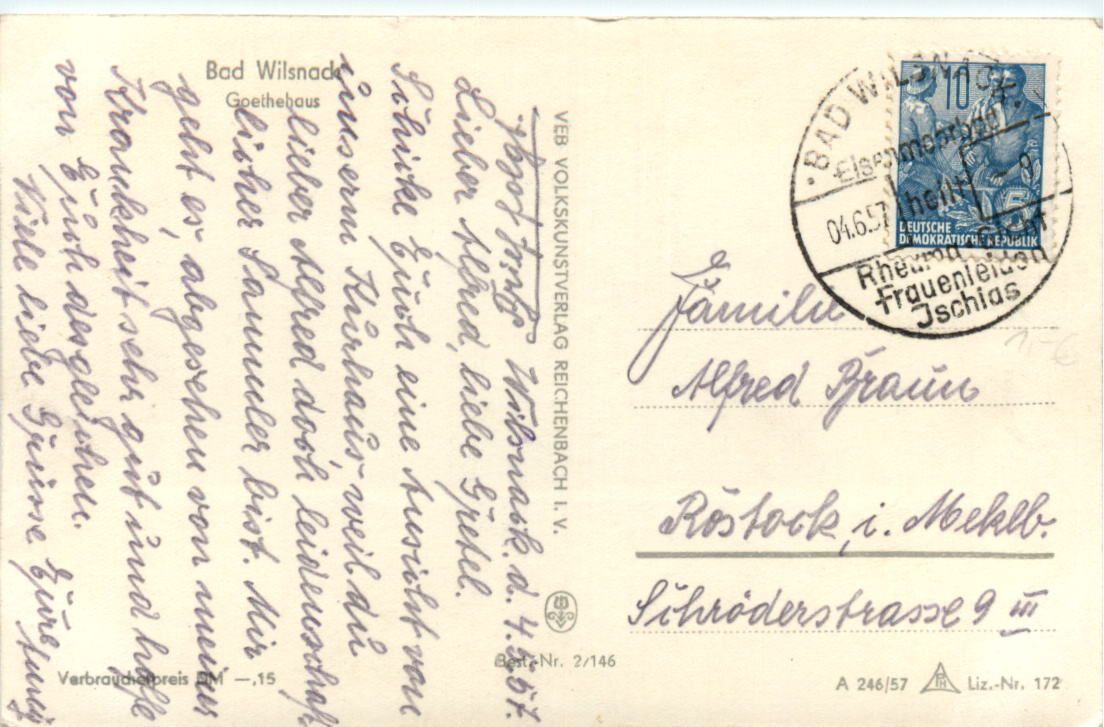 Bad Wilsnack
Goethehaus
Wilsnack, d. 4.6.57.
Lieber Alfred, liebe Gretel.
Schicke Euch eine Ansicht von
unserm Kurhaus, weil du
lieber Alfred doch leidenschaft-
licher Sammler bist. Mir
geht es, abgesehen von meiner
Krankheit sehr gut und hoffe
von Euch desgleichen.
Viele liebe Grüsse Eure
VEB VOLKSKUNSTVERLAG REICHENBACH I. V.
BAD WILSNACK
Eisenmoorbad
heilt
04.6.57
Gicht
Rheuma
Frauenleiden
Ischias
10
5
DEUTSCHE
DEMOKRATISCHE REPUBLIK
Familie
Alfred Braun
Rostock i. Meklb.
Schröderstrasse 9 III
1,-€
Verbraucherpreis DM —,15
Best.-Nr. 2/146
A 246/57 Liz.-Nr. 172